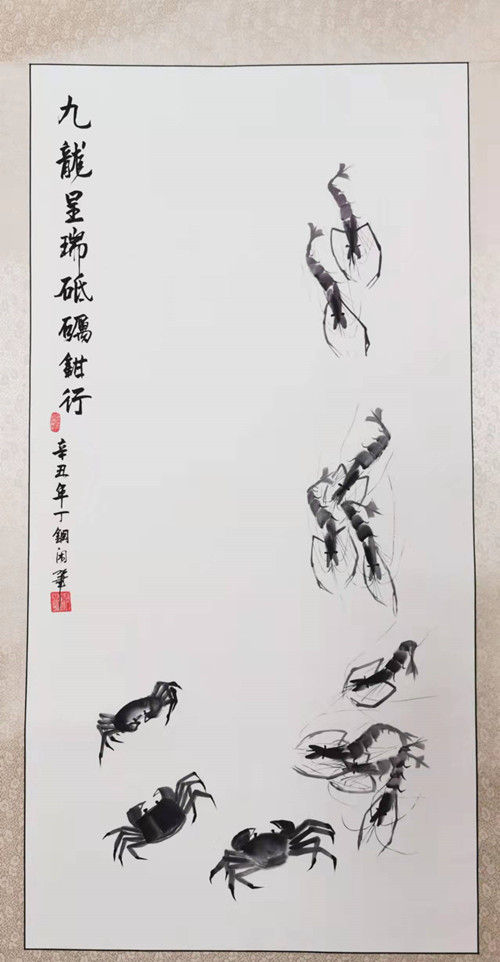 九龍呈瑞砥礪鉗行
辛丑年丁鋼閑筆